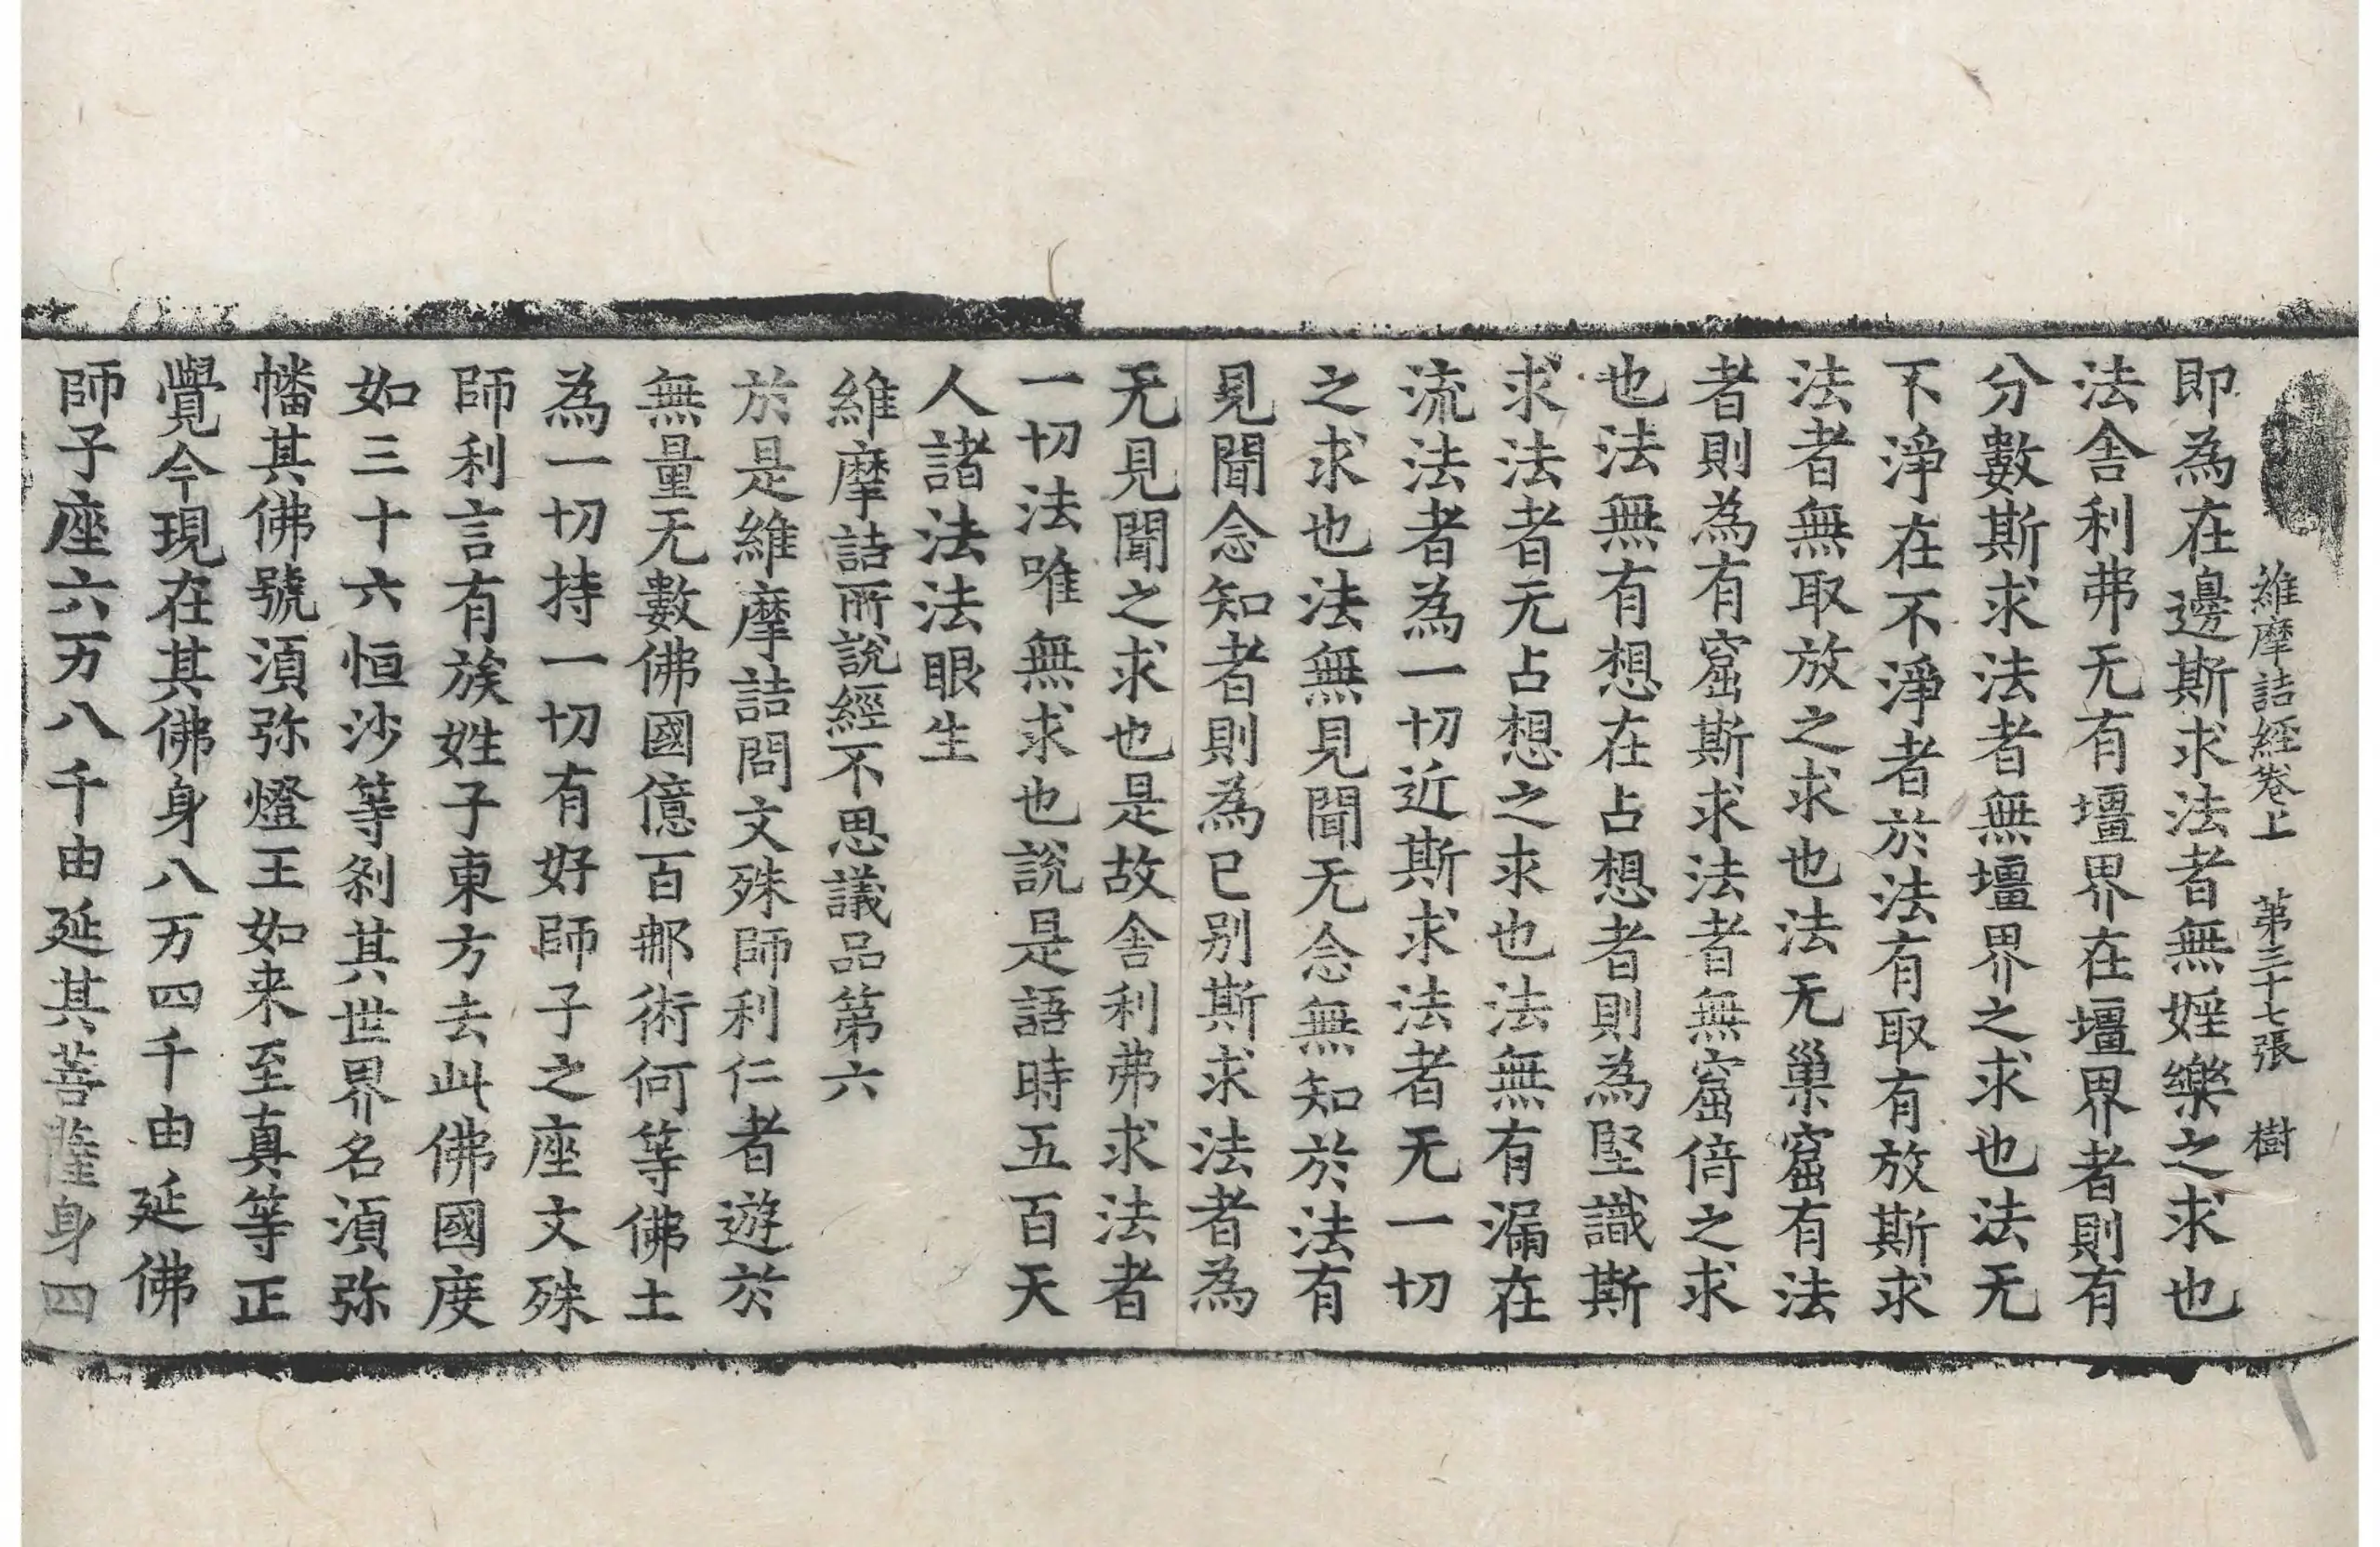 維摩詰経卷上　第三十七張　樹
即為在邊斯求法者無婬樂之求也
法舎利弗无有壃界在壃界者則有
分數斯求法者無壃界之求也法无
不淨在不淨者於法有取有放斯求
法者無取放之求也法无巢窟有法
者則為有窟斯求法者無窟倚之求
也法無有想在占想者則為堅識斯
求法者无占想之求也法無有漏在
流法者為一切近斯求法者无一切
之求也法無見聞无念無知於法有
見聞念知者則為已别斯求法者為
无見聞之求也是故舎利弗求法者
一切法唯無求也說是語時五百天
人諸法法眼生
維摩詰所說經不思議品第六
於是維摩詰問文殊師利仁者遊於
無量无數佛國億百那術何等佛土
為一切持一切有好師子之座文殊
師利言有族姓子東方去此佛國度
如三十六恒沙等刹其世界名湏弥
幡其佛號湏弥燈王如来至真等正
覺今現在其佛身八万四千由延佛
師子座六万八千由延其菩薩身四